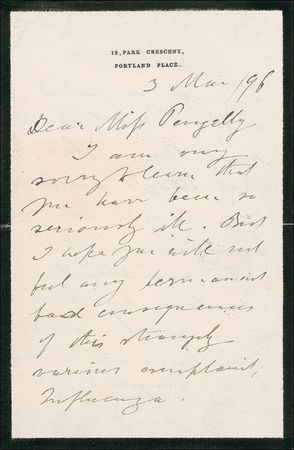 12, PARK CRESCENT,
PORTLAND PLACE.
3 Mar/96
Dear Miss Pengelly
I am very
sorry to learn that
you have been so
seriously ill. But
I hope you will not
feel any permanent
bad consequences
of this strangely
various complaint,
Influenza.